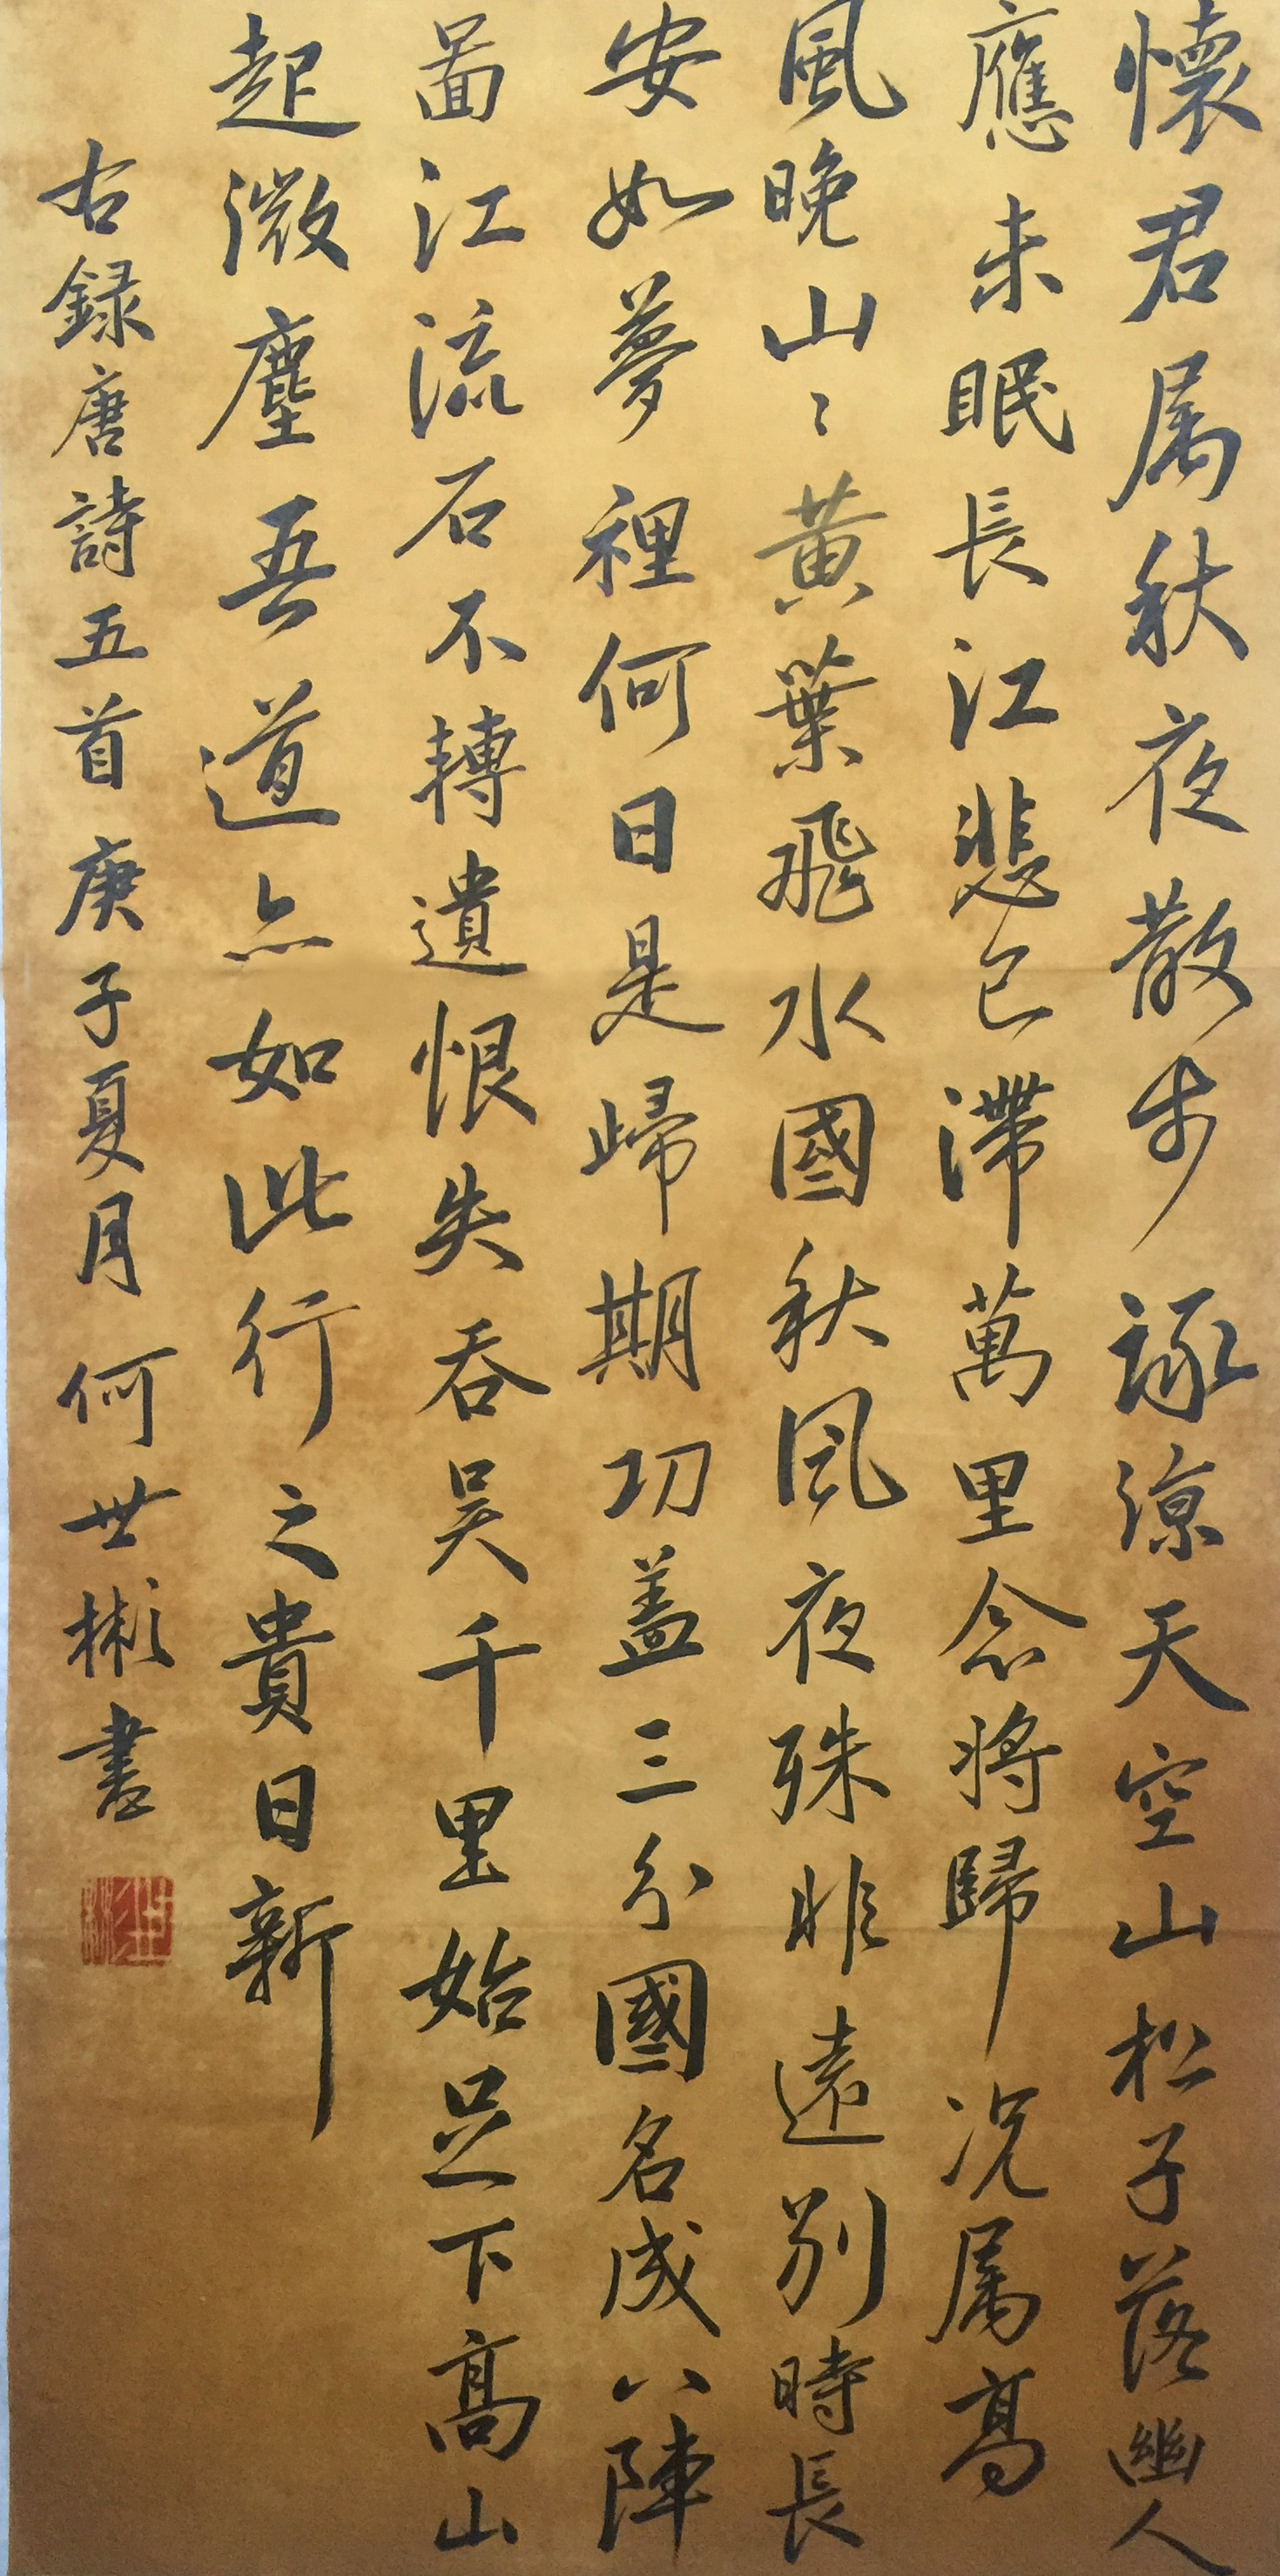 懷君属秋夜散步詠涼天空山松子落幽人
應未眠長江悲已滯萬里念將歸况属高
風晚山〻黃葉飛水國秋風夜殊非遠別時長
安如夢裡何日是歸期功盖三分國名成八陣
啚江流石不轉遺恨失吞吴千里始足下高山
起微塵吾道亦如此行之貴日新
右録唐詩五首庚子夏月何世彬書
世彬